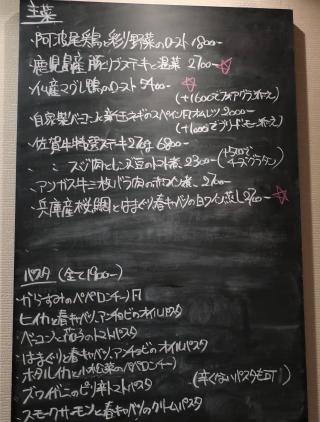 主菜
・阿波尾鶏と彩り野菜のロースト 1800-
・鹿児島産豚リブステーキと温菜 2700- ☆
・仏産マグレ鴨のロースト 5400- ☆
(+1600でフォアグラ添え)
・自家製ベーコンと新玉ネギのスペイン風オムレツ 2000-
(+1000でブリードモー添え)
・佐賀牛特選ステーキ 6800-
〃 : スジ肉とレンズ豆のトマト煮 2300-
チーズグラタン)
・アンガス牛三枚バラ肉の 煮 2700-
・兵庫産桜鯛とはまぐり春キャベツの白ワイン蒸し 2700- ☆
パスタ (全て1900-)
・からすみのペペロンチーノ風
・ヒイカと春キャベツ、アンチョビのオイルパスタ
・ベーコンと茄子のトマトパスタ
・はまぐりと春キャベツ、アンチョビのオイルパスタ
・ホタルイカと小松菜のペペロンチーノ
・ズワイガニのピリ辛トマトパスタ (辛くないパスタも可!)
・スモークサーモンと春キャベツのクリームパスタ